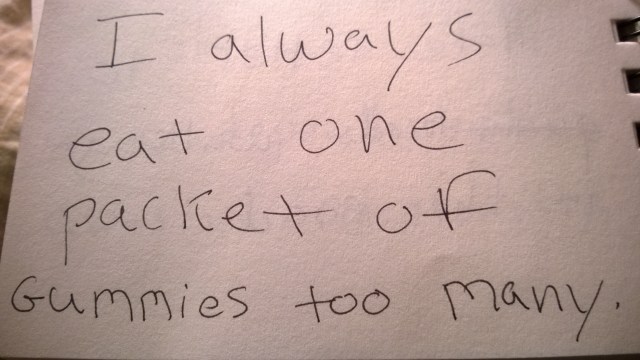 I always
eat one
packet of
Gummies too many.